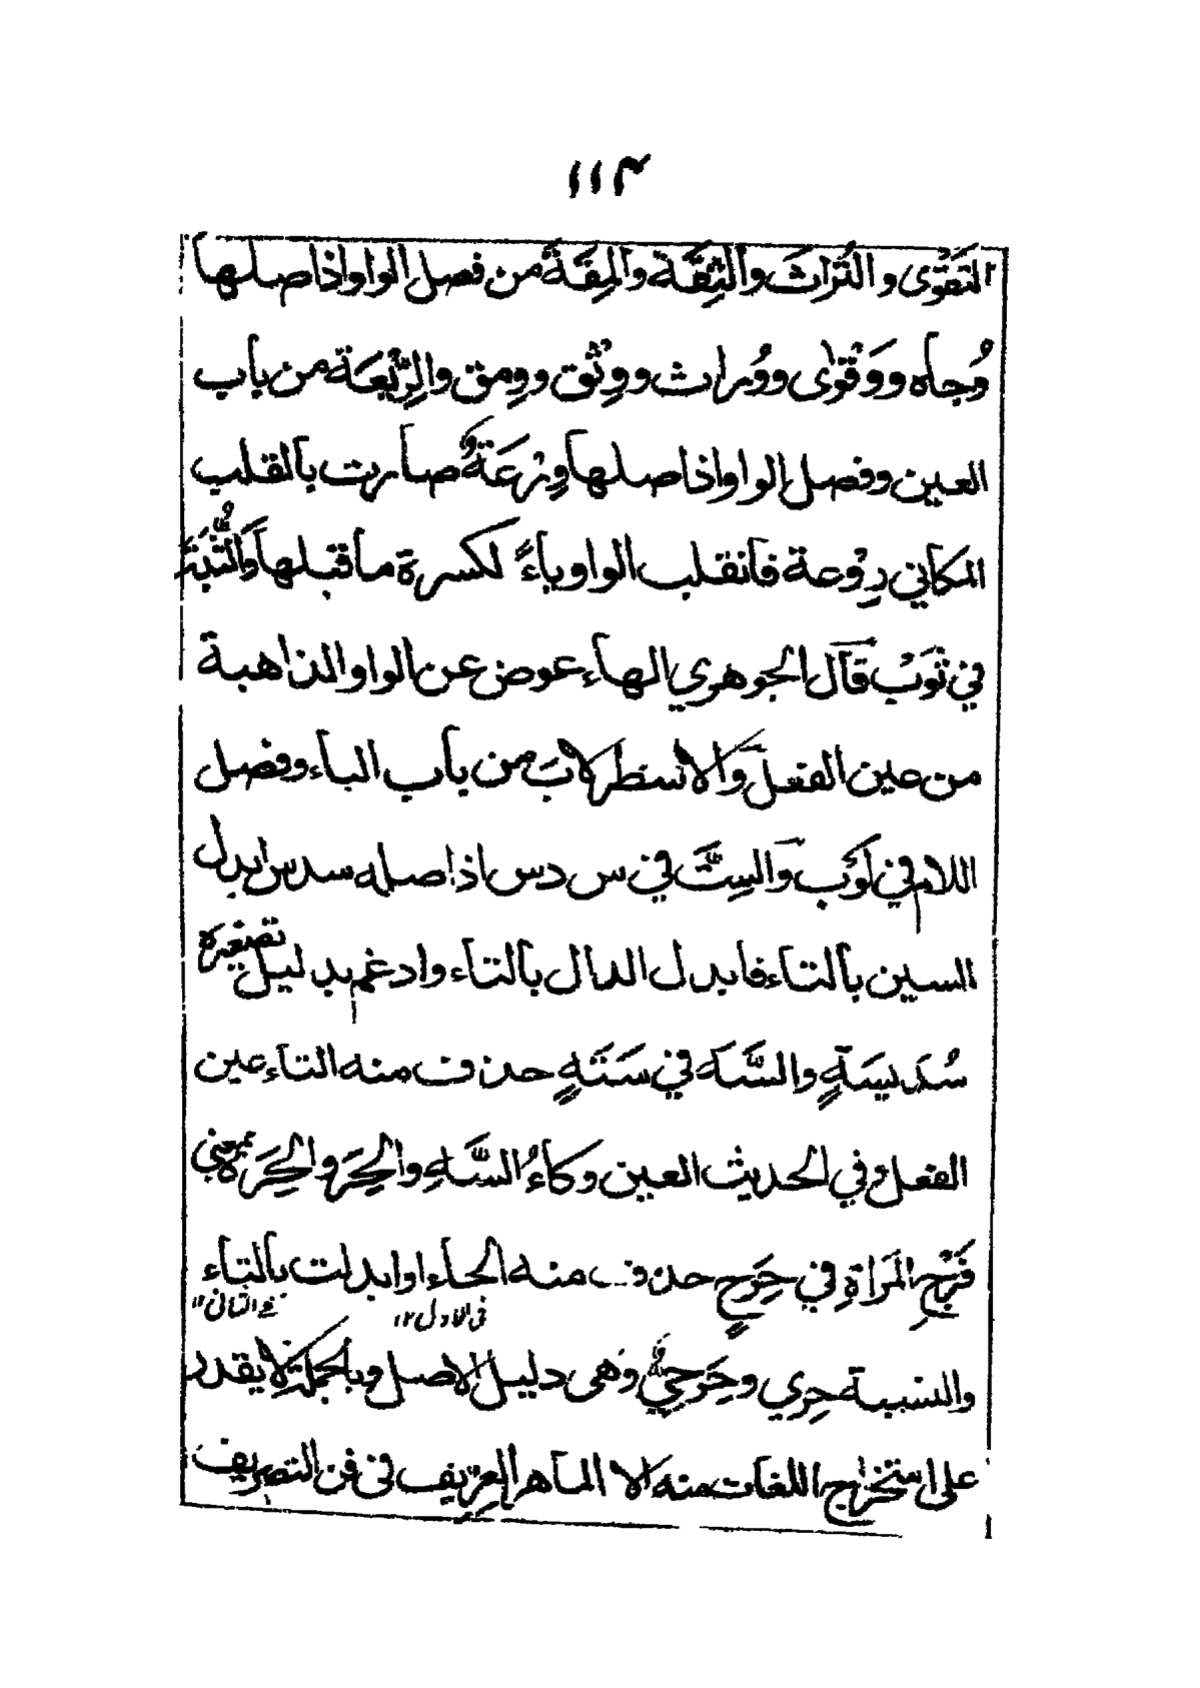 ١١٣
التَقوٰى والتُراثَ والثِقَةَ والمِقَةَ من فصل الواو اذ اصلها
وُجاه ووَقْوٰى ووُراث ووِثْق وومق والرِيْعَةَ من باب
العين وفصل الواو اذ اصلها وِزْعَةٌ صارت بالقلب
المكاني رِوْعة فانقلب الواو ياءً لكسرة ما قبلها والثُبَةَ
في ثَوَبْ قال الجوهري الهاء عوض عن الواو الذاهبة
من عين الفعل والاسطرلابَ من باب الباء وفصل
اللام في لَوَب والسِتَّ في س د س اذ اصله سدس ابدل
السين بالتاء فابدل الدال بالتاء وادغم بدليل تصغيره
سُدَيسَةٍ والسَّهَ في سَتَهٍ حذف منه التاء عين
الفعل وفي الحديث العين وكاءُ السَّهِ والحِرَ والحِرَةَ بمعنى
فَرْجِ المَراةِ في حِرَحٍ حذف منه الحاء او ابدلت بالتاء
في الاول ١٢
في الثاني ١٢
والنسبة حِرِي وحِرَحِيٌّ وهى دليل الاصل وبالجملة لا يقدر
على استخراج اللغات منه الا الماهر العِرِّيف فى فن التصريف